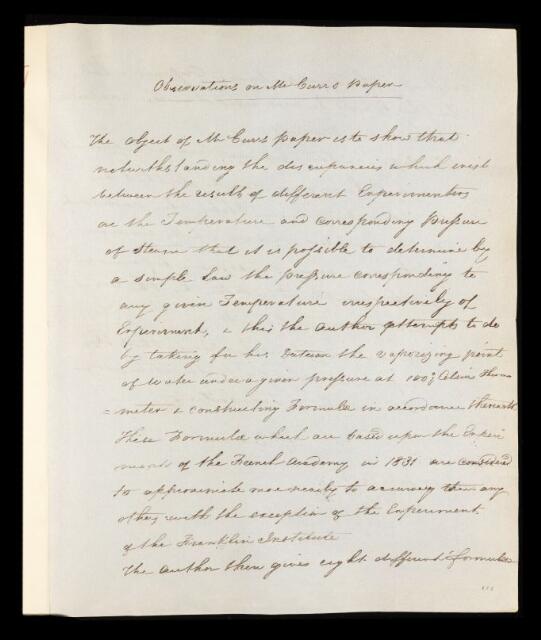 Observations on Mr Curr's Paper
The object of Mr Curr's paper is to show that
notwithstanding the discrepancies which exist
between the result of different Experimenters
on the Temperature and corresponding Pressure
of Steam that it is possible to determine by
a simple Law the pressure corresponding to
any given Temperature irrespectively of
Experiment, & this the author attempts to do
by taking for his the vaporizing point
of Water under a given pressure at 100° Thermo
=meter & constructing Formulæ in accordance therewith
These Formulæ which are based upon the Experi
ments of the French Academy in 1831 are considered
to approximate more nearly to accuracy than any
other with the exception of the Experiment
of the Franklin Institute
The author then gives eight different formulæ